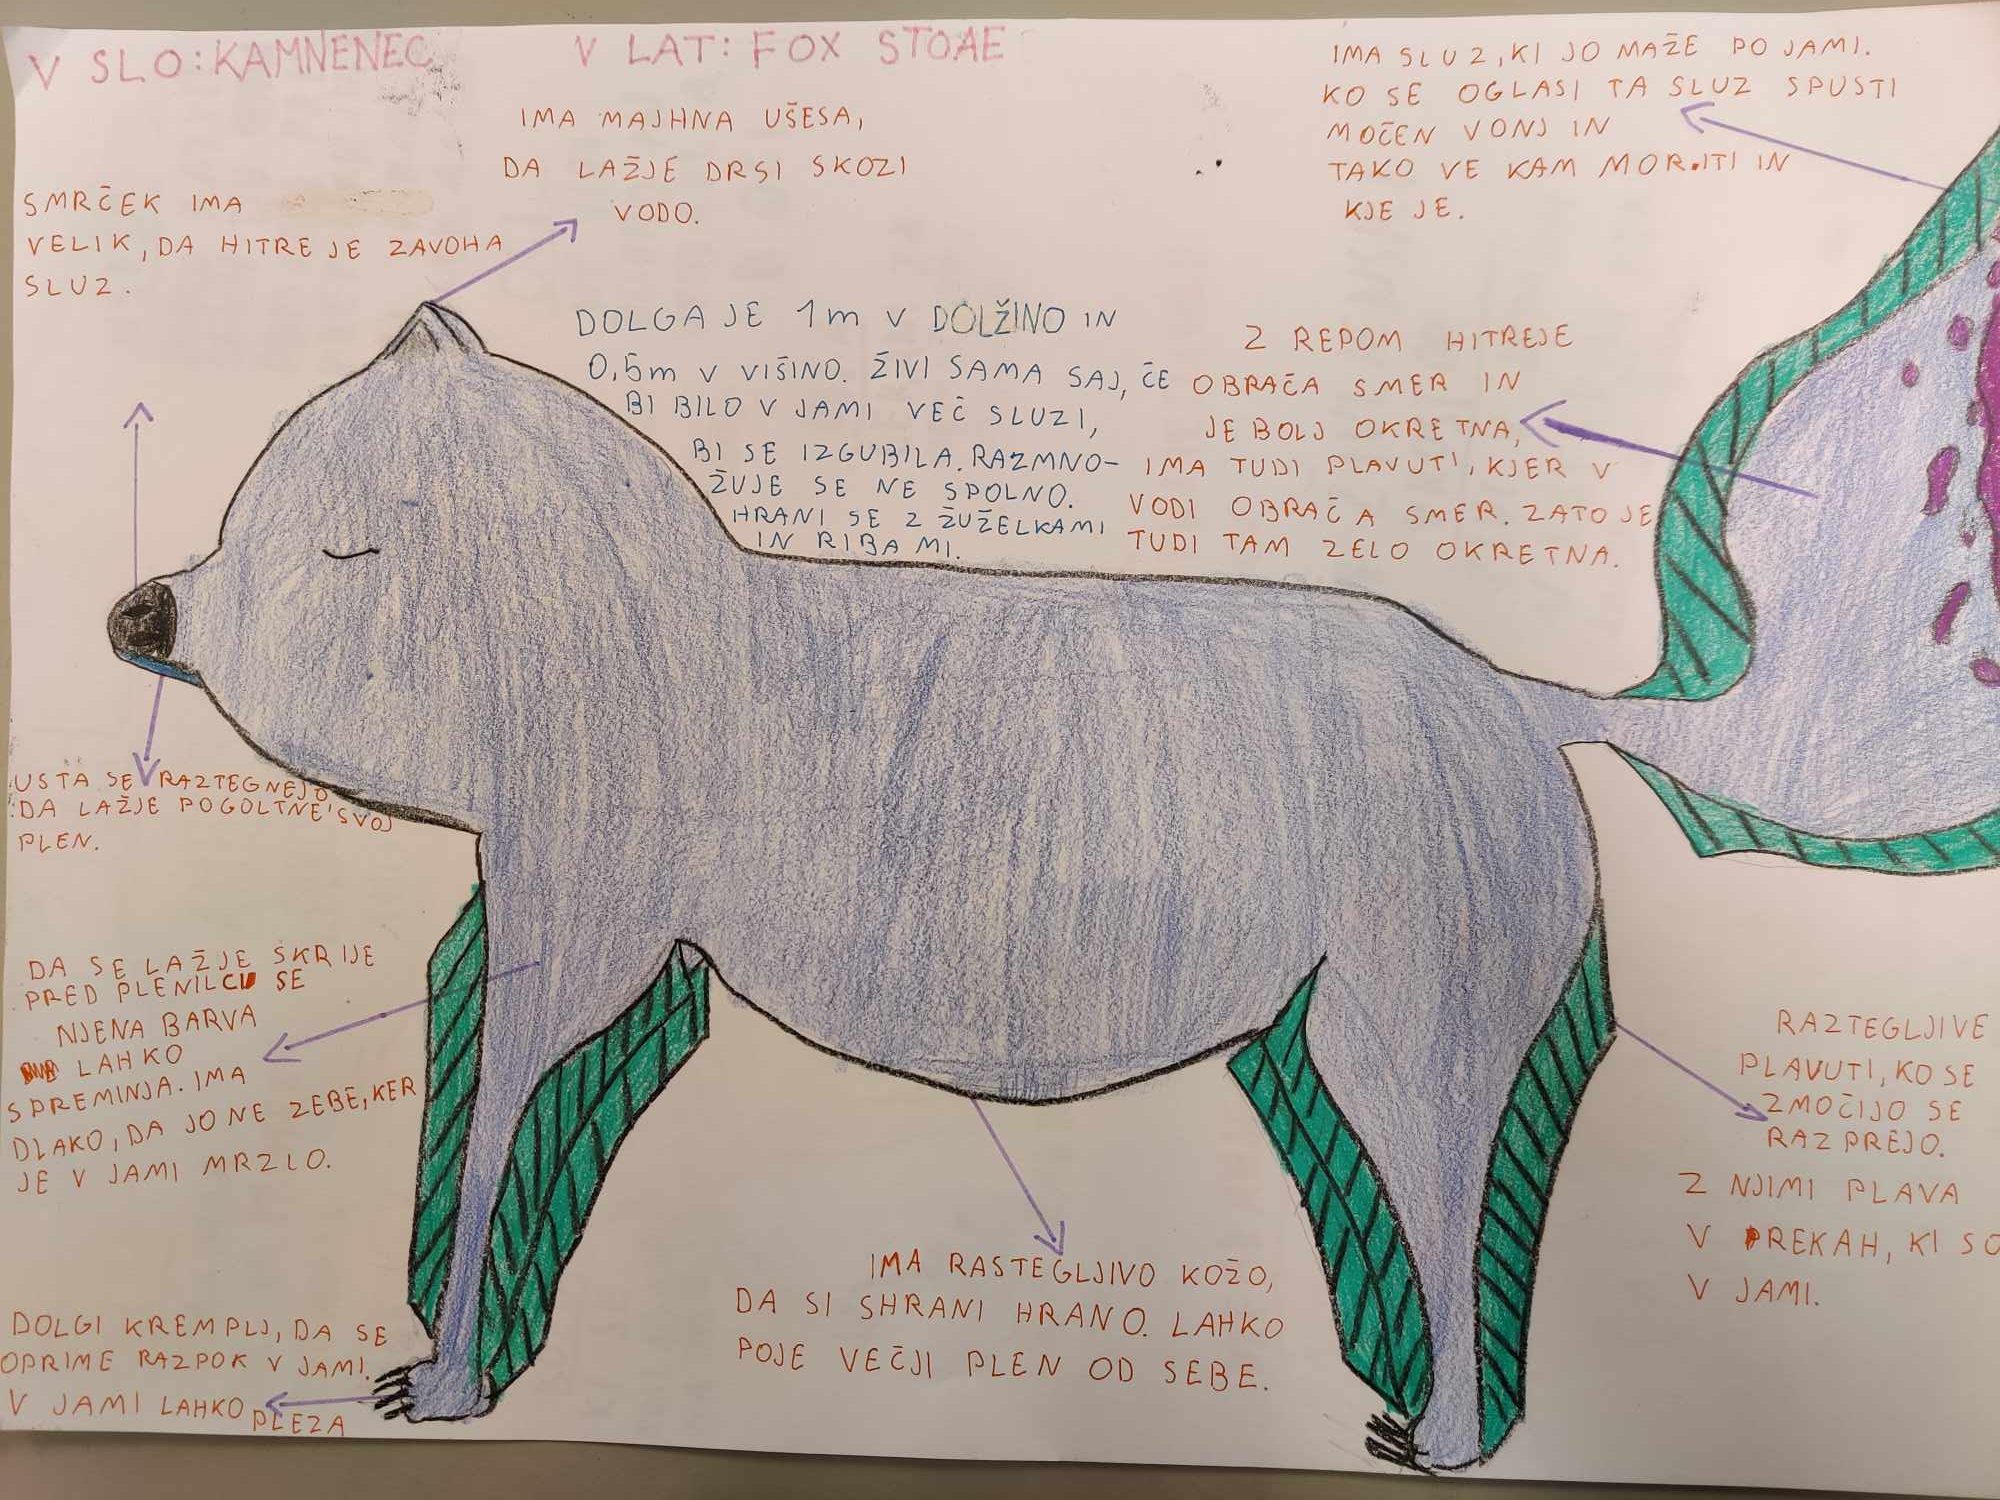 V SLO: KAMNENEC
V LAT: FOX STOAE
IMA MAJHNA UŠESA,
DA LAŽJE DRSI SKOZI
VODO.
IMA SLUZ, KI JO MAŽE PO JAMI.
KO SE OGLASI TA SLUZ SPUSTI
MOČEN VONJ IN
TAKO VE KAM MORITI IN
KJE JE.
SMRČEK IMA
VELIK, DA HITREJE ZAVOHA
SLUZ.
DOLGA JE 1m V DOLŽINO IN
0,5m V VIŠINO. ŽIVI SAMA SAJ, ČE
BI BILO V JAMI VEČ SLUZI,
BI SE IZGUBILA. RAZMNO-
ŽUJE SE NE SPOLNO.
HRANI SE Z ŽUŽELKAMI
IN RIBAMI.
Z REPOM HITREJE
OBRAČA SMER IN
JE BOLJ OKRETNA,
IMA TUDI PLAVUTI, KJER V
VODI OBRAČA SMER. ZATO JE
TUDI TAM ZELO OKRETNA.
USTA SE RAZTEGNEJO
DA LAŽJE POGOLTNE SVOJ
PLEN.
DA SE LAŽJE SKRIJE
PRED PLENILCI SE
NJENA BARVA
LAHKO
SPREMINJA. IMA
DLAKO, DA JO NE ZEBE, KER
JE V JAMI MRZLO.
DOLGI KREMPLJ, DA SE
OPRIME RAZPOK V JAMI.
V JAMI LAHKO PLEZA
IMA RASTEGLJIVO KOŽO,
DA SI SHRANI HRANO. LAHKO
POJE VEČJI PLEN OD SEBE.
RAZTEGLJIVE
PLAVUTI, KO SE
ZMOČIJO SE
RAZPREJO.
Z NJIMI PLAVA
V REKAH, KI SO
V JAMI.